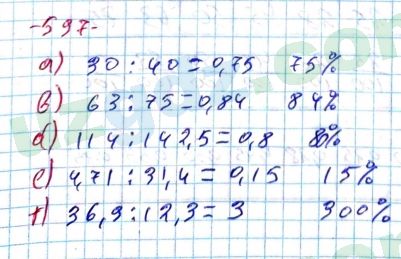 -597-
a) 30 : 40 = 0,75 75%
b) 63 : 75 = 0,84 84%
d) 114 : 142,5 = 0,8 80%
e) 4,71 : 31,4 = 0,15 15%
f) 36,9 : 12,3 = 3 300%